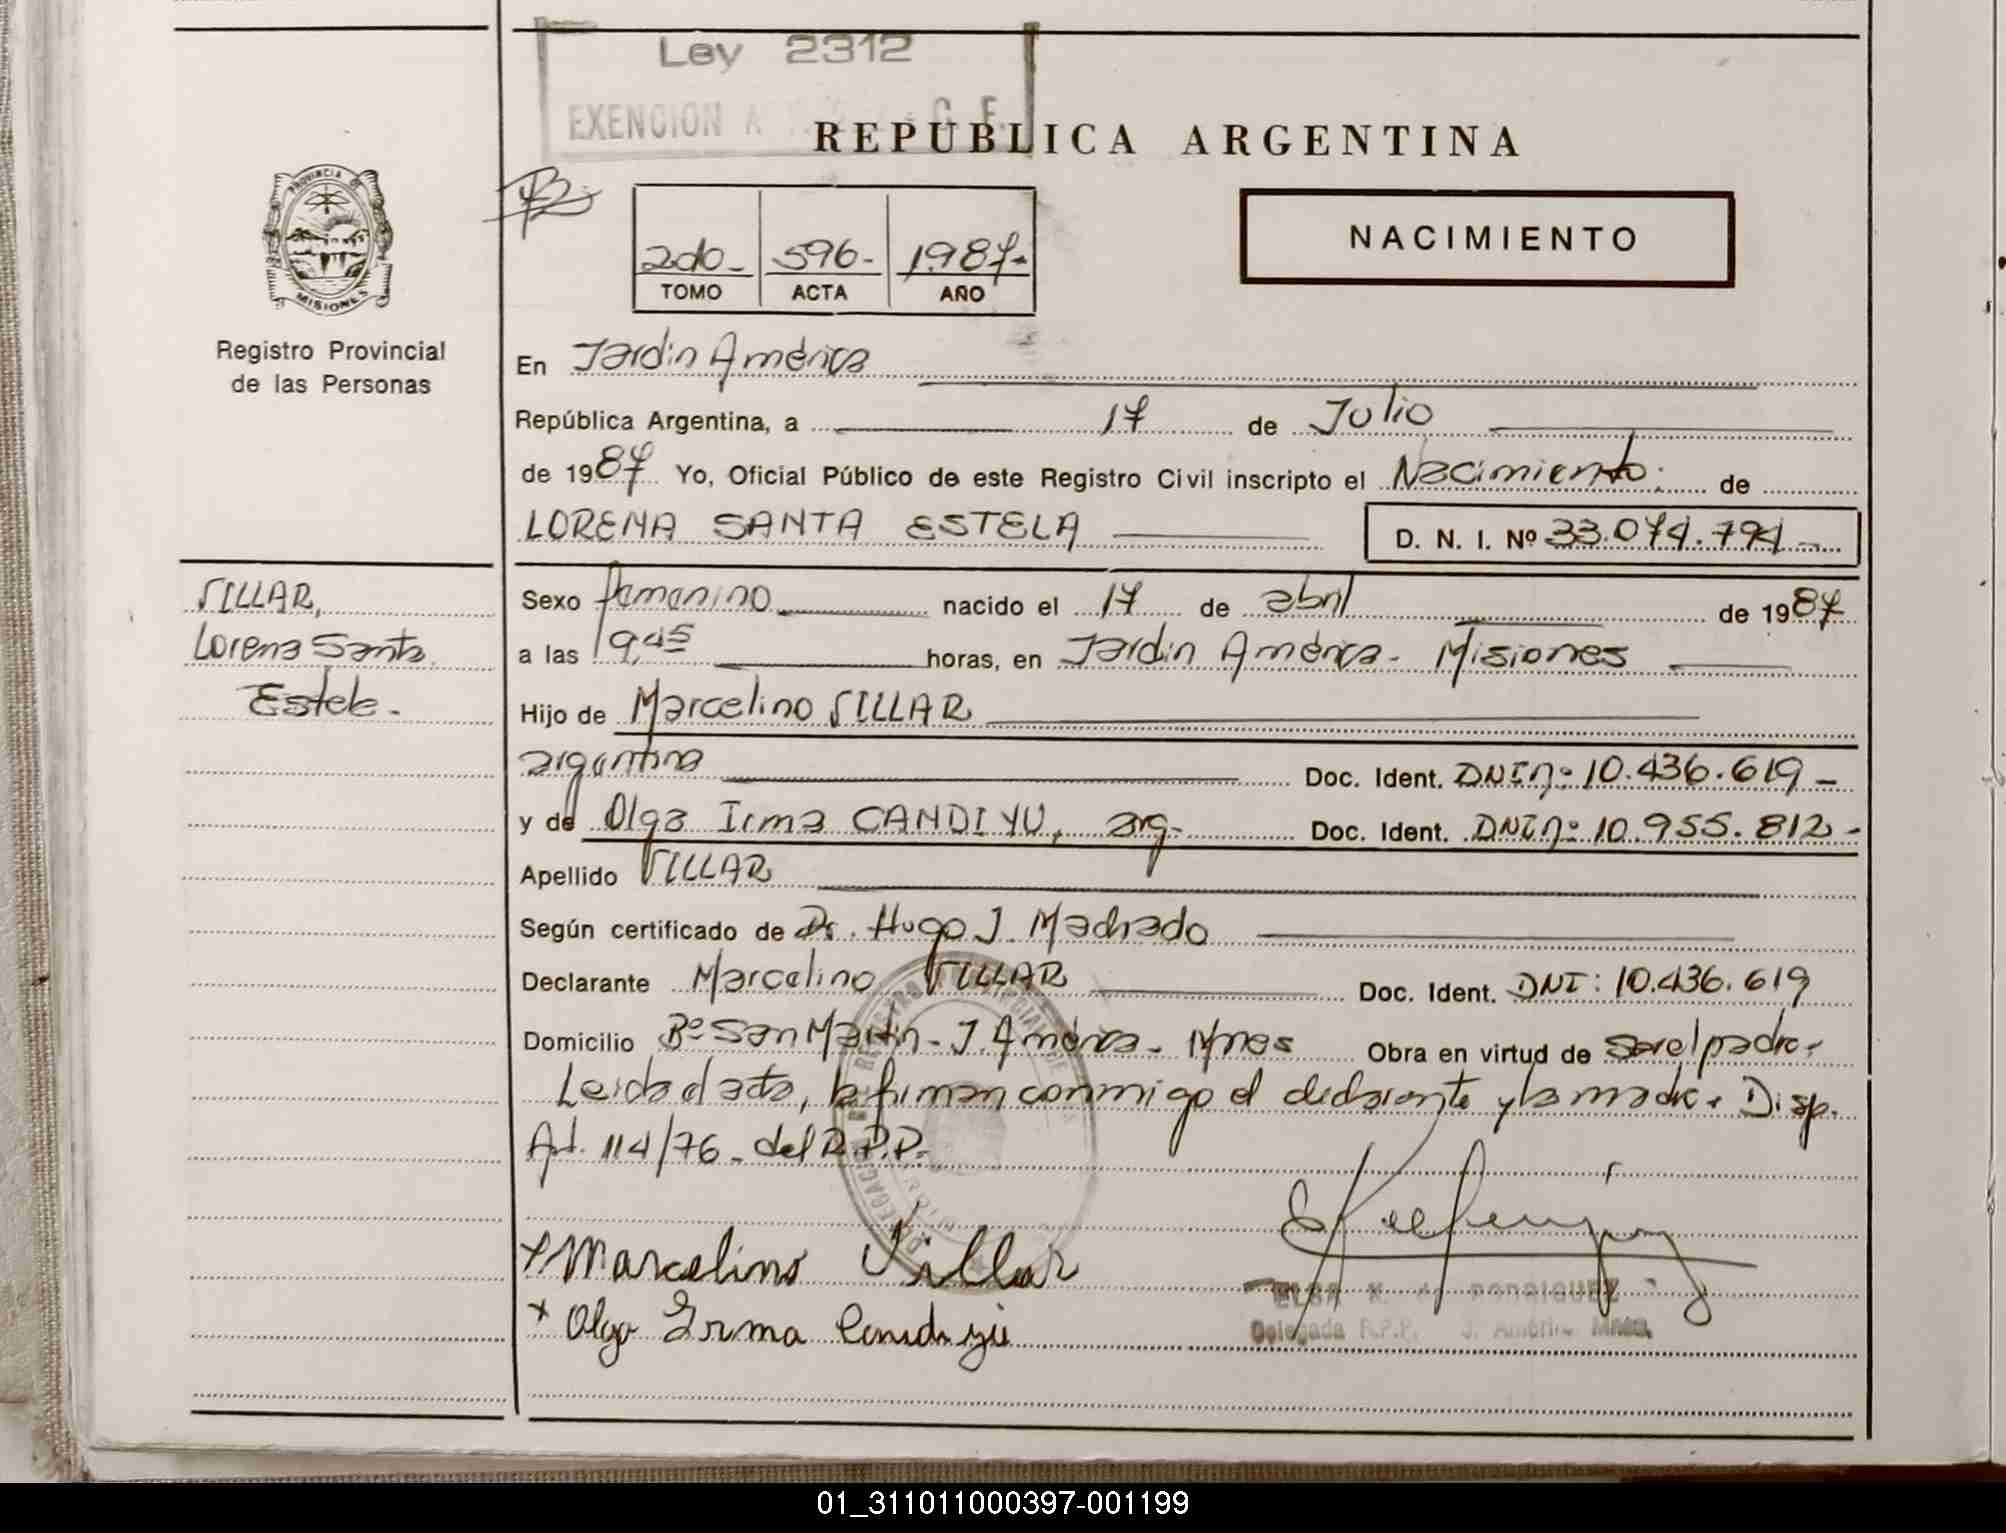 Ley 2312
EXENCION
REPUBLICA ARGENTINA
PROVINCIA DE
MISIONES
Registro Provincial
de las Personas
2do- 596- 1987-
TOMO ACTA AÑO
NACIMIENTO
En Jardin América
República Argentina, a 17 de Julio
de 1987 Yo, Oficial Público de este Registro Civil inscripto el Nacimiento; de
LORENA SANTA ESTELA D. N. I. Nº 33.074.794-
VILLAR,
Lorena Santa
Estela.
Sexo femenino nacido el 17 de abril de 1987
a las 19,45 horas, en Jardin América- Misiones
Hijo de Marcelino VILLAR
argentina Doc. Ident. DNI nº 10.436.619-
y de Olga Irma CANDIYU, arg- Doc. Ident. DNI nº 10.955.812-
Apellido VILLAR
Según certificado de Dr. Hugo J. Machado
Declarante Marcelino VILLAR Doc. Ident. DNI: 10.436.619
Domicilio Bº San Martin- J. América- Mnes Obra en virtud de ser el padre.
Leida el acta, la firman conmigo el declarante y la madre. Disp.
Art. 114/76- del R.P.P.-
x Marcelino Villar
x Olga Irma Candiyú
ELSA K. de RODRIGUEZ
Delegada R.P.P. J. América Mnes.
01_311011000397-001199